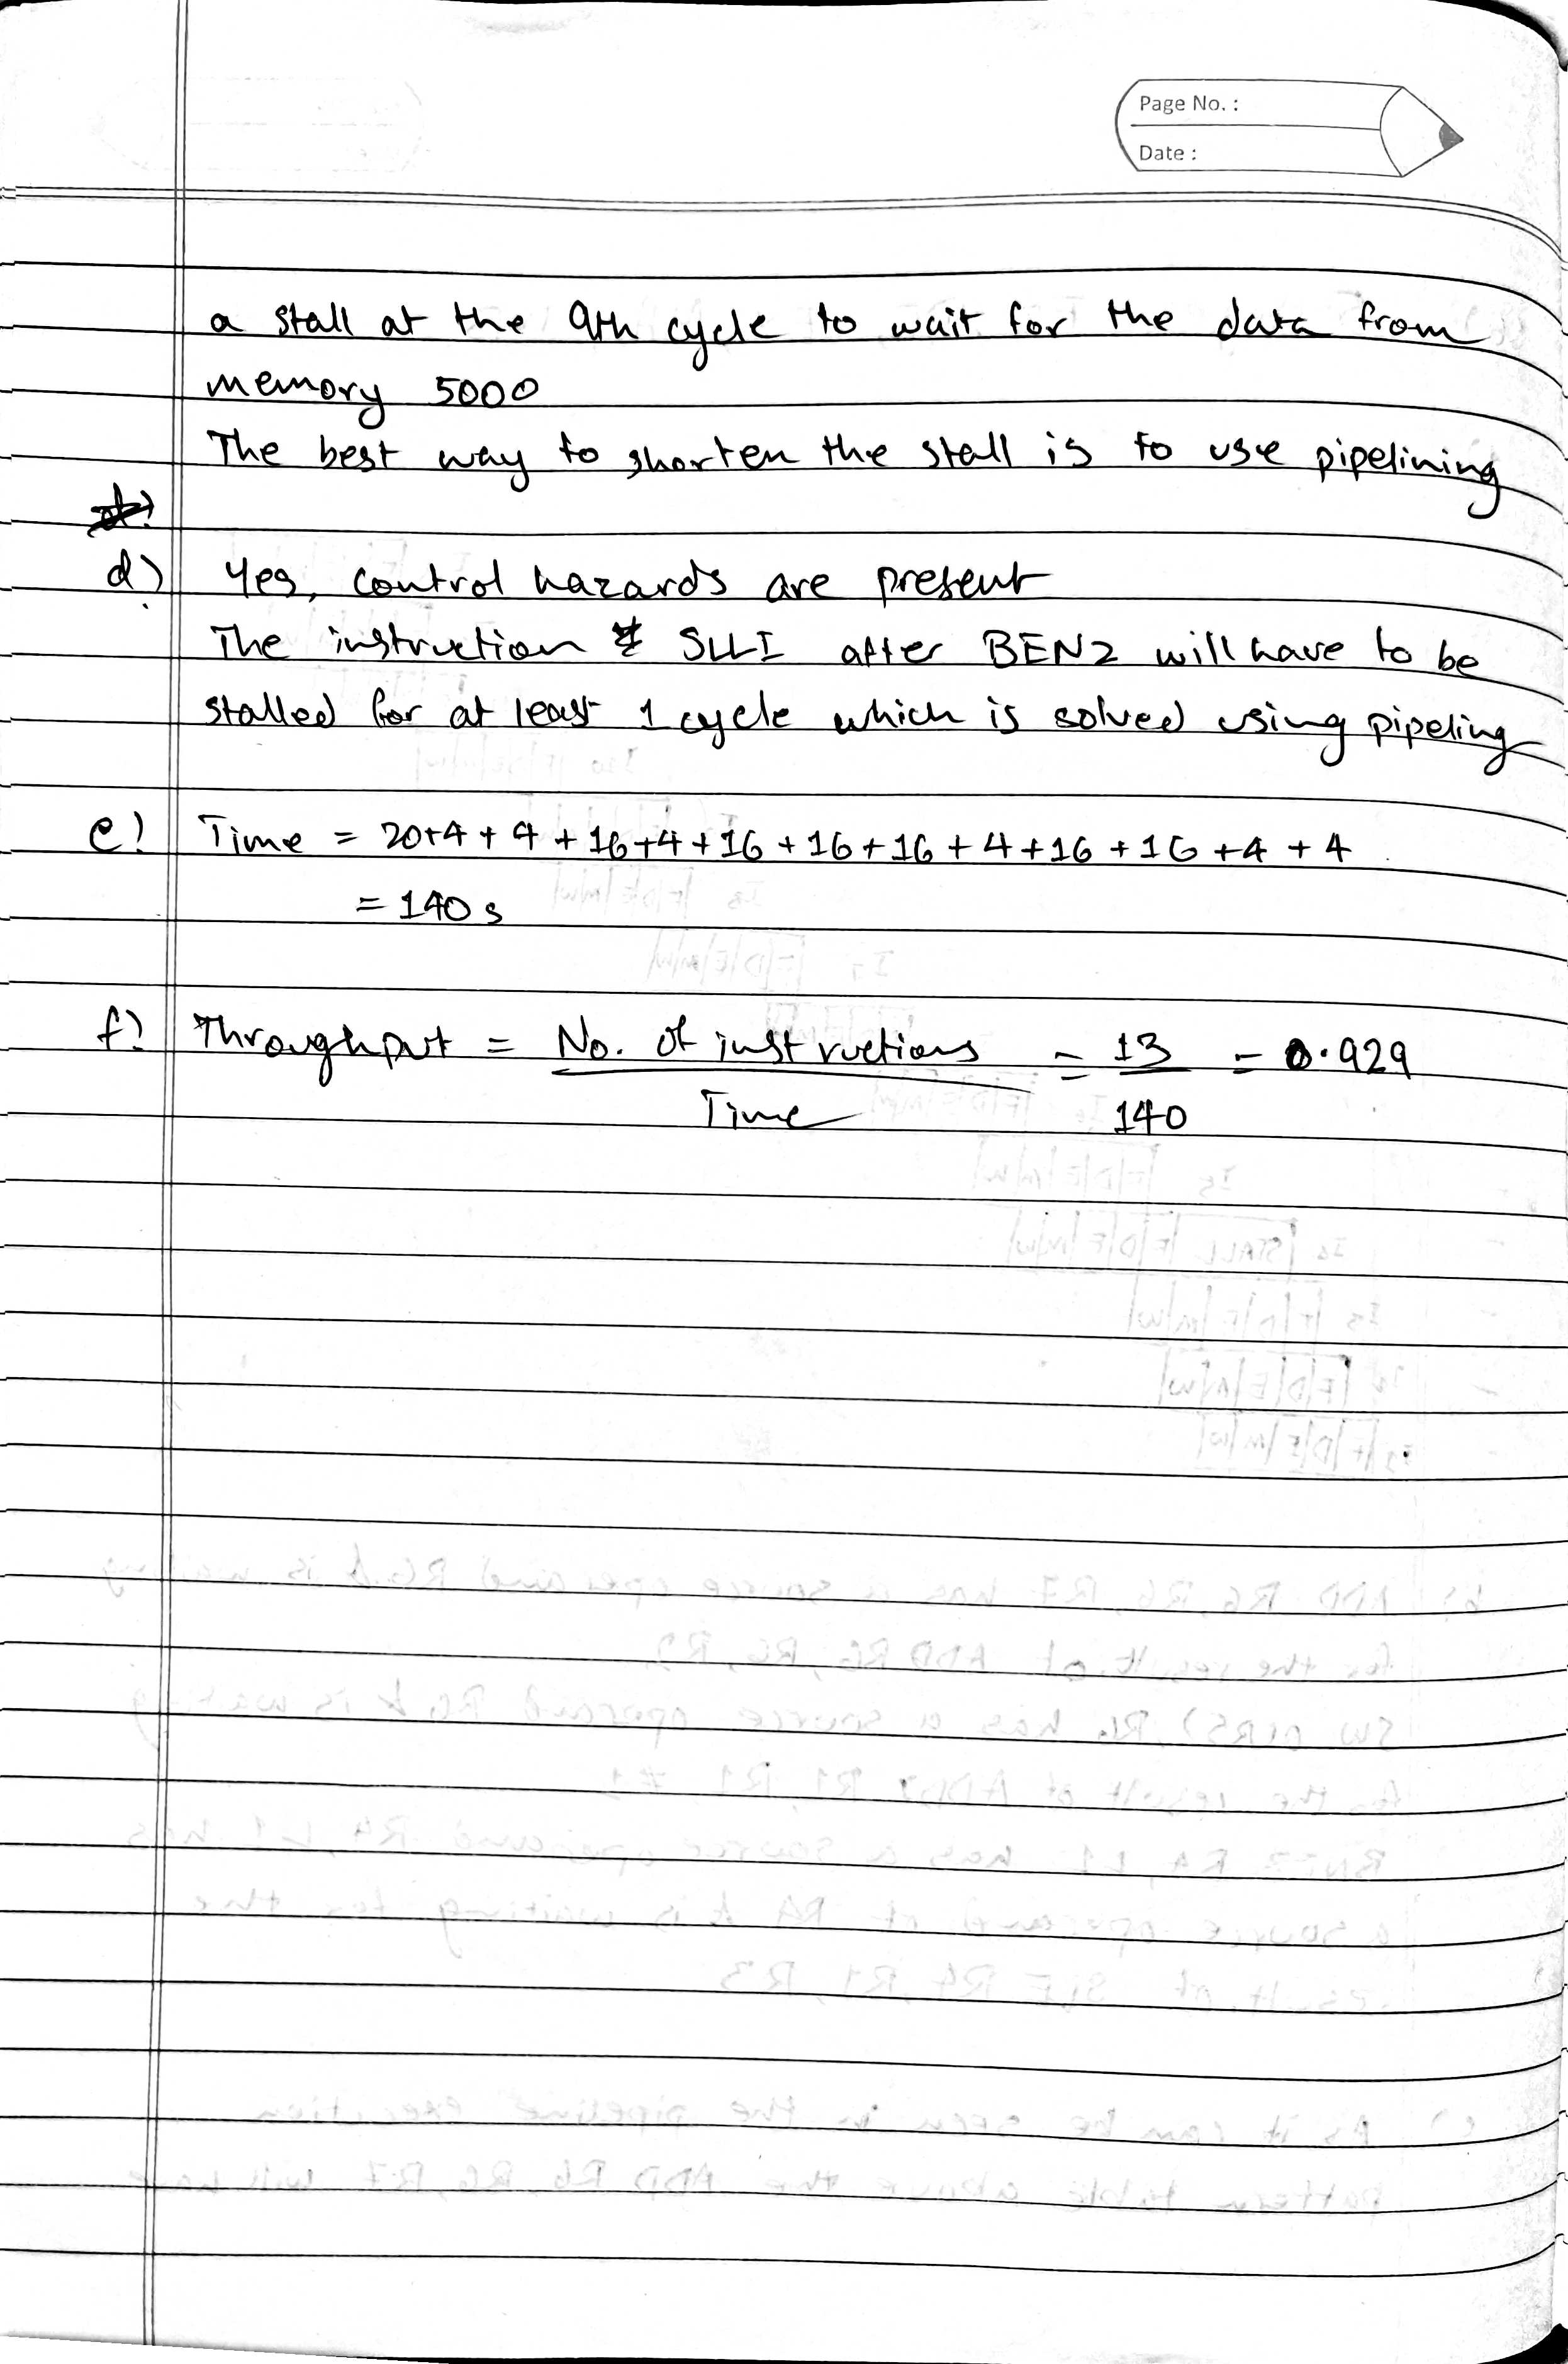 Page No. :
Date :
a stall at the 9th cycle to wait for the data from
memory 5000
The best way to shorten the stall is to use pipelining
d) Yes, control hazards are present
The instruction SLLI after BENZ will have to be
stalled for at least 1 cycle which is solved using pipeling
e) Time = 20+4+4+16+4+16+16+16+4+16+16+4+4
= 140 s
f) Throughput = No. of instructions / Time = 13 / 140 = 0.929